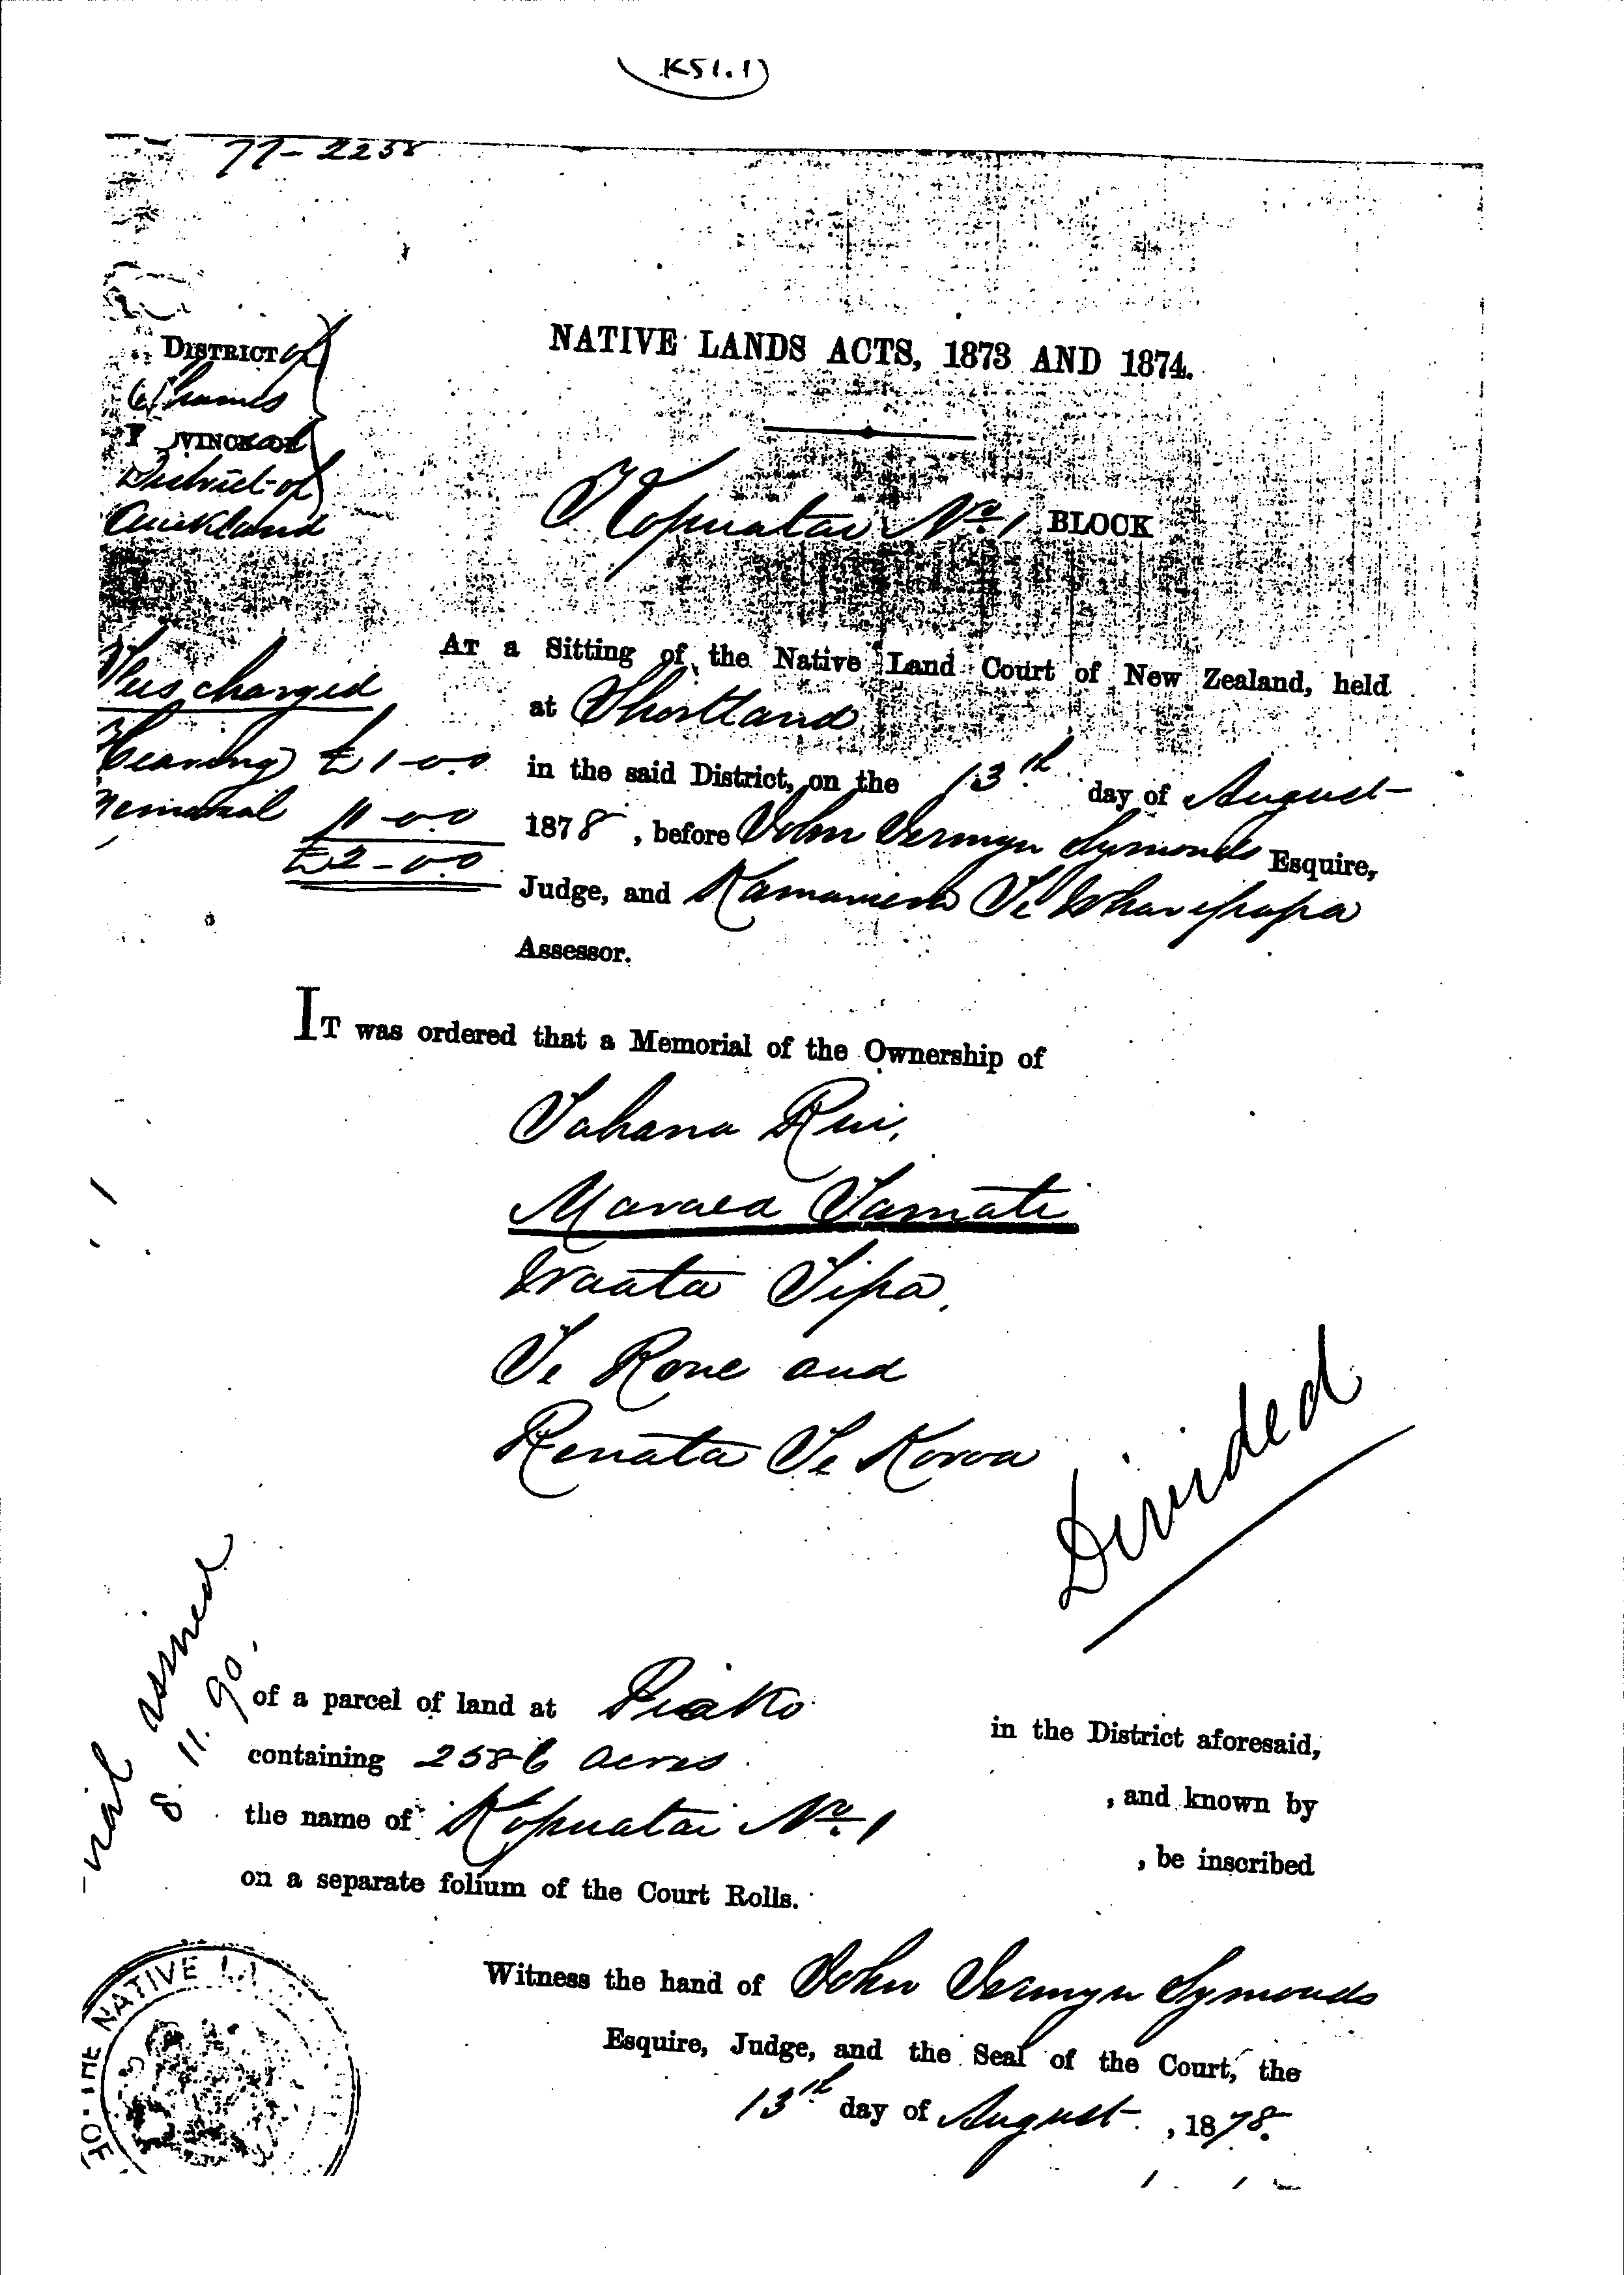 K51.1
77-2258
NATIVE LANDS ACTS, 1873 AND 1874.
DISTRICT of
Thames
District of
Auckland
Kopuatai No. 1 BLOCK
AT a Sitting of the Native Land Court of New Zealand, held
at Shortland
in the said District, on the 13th day of August
1878, before John Jermyn Symonds Esquire,
Judge, and Kamariera Te Wharepapa
Assessor.
Fees charged
Hearing £1-0.0
Memorial 1-0.0
£2-0.0
IT was ordered that a Memorial of the Ownership of
Tahana Rui,
Maraea Tamati
Waata Tipa,
Te Rone and
Renata Te Koroa
Divided
assined
8. 11. 90.
of a parcel of land at Piako in the District aforesaid,
containing 2586 acres , and known by
the name of Kopuatai No. 1 , be inscribed
on a separate folium of the Court Rolls.
Witness the hand of John Jermyn Symonds
Esquire, Judge, and the Seal of the Court, the
13th day of August , 1878.
OF THE NATIVE